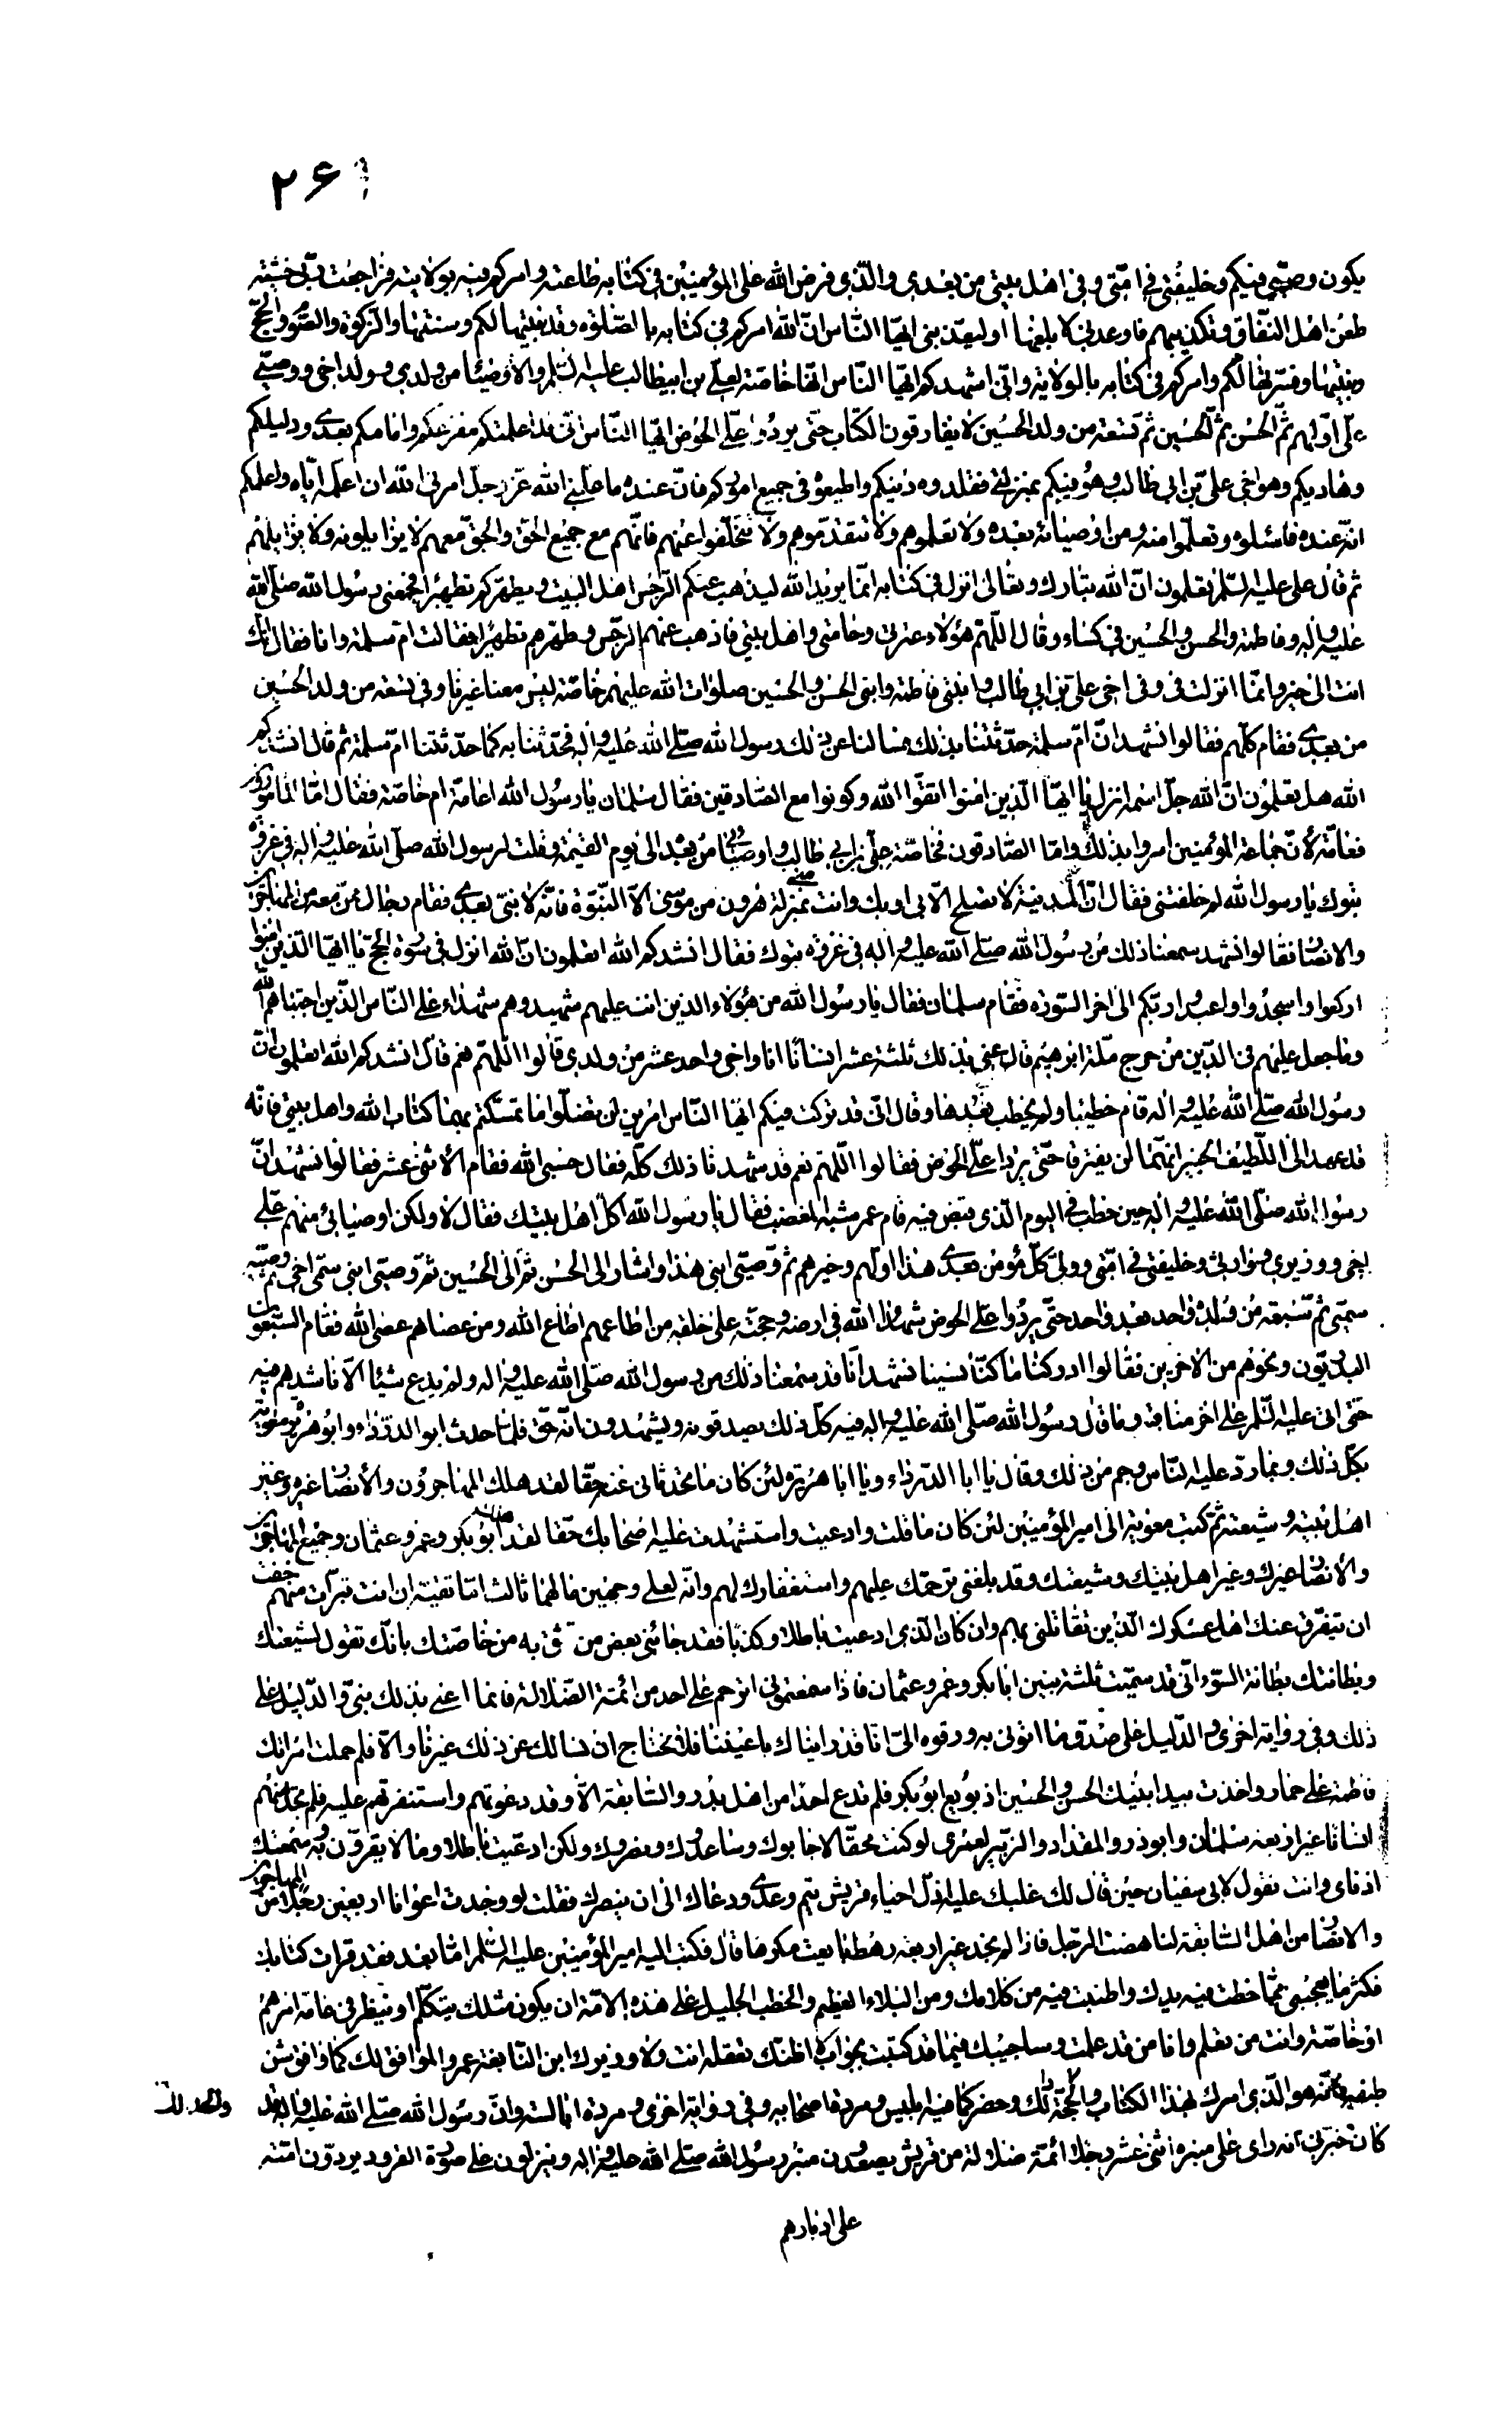 ۲۶
يكون وصيّي فيكم وخليفتي في امّتي وفي اهل بيتي من بعدي والّذي فرض الله على المؤمنين في كتابه طاعته وامركم فيه بولايته فراجعت ربّي خشية
طعن اهل النّفاق وتكذيبهم فاوعدني لابلغنها او ليعذّبني ايّها النّاس انّ الله امركم في كتابه بالصّلوة وقد بيّنتها لكم وسننتها والزّكوة والصّوم والحجّ
فبيّنتها وفسّرتها لكم وامركم في كتابه بالولاية وانّي اشهدكم ايّها النّاس انّها خاصّة لعليّ بن ابيطالب عليه السّلم والاوصياء من ولدي وولد اخي ووصيّي
عليّ اوّلهم ثمّ الحسن ثمّ الحسين ثم تسعة من ولد الحسين لا يفارقون الكتاب حتّى يردوا علىّ الحوض ايّها النّاس انّي قد اعلمتكم مفزعكم وامامكم بعدي ودليلكم
وهاديكم وهو اخي عليّ بن ابي طالب وهو فيكم بمنزلتي فقلدوه دينكم واطيعوه في جميع اموركم فانّ عنده ما علّمني الله عزّ وجلّ امرني الله ان اعلّمه ايّاه واعلمكم
انّه عنده فاسئلوه وتعلّموا منه ومن اوصيائه بعده ولا تعلموهم ولا تتقدّموهم ولا تتخلّفوا عنهم فانّهم مع جميع الحق والحقّ معهم لا يزايلونه ولا يزايلهم
ثم قال علي عليه السّلم تعلمون انّ الله تبارك وتعالى انزل في كتابه انّما يريد الله ليذهب عنكم الرّجس اهل البيت ويطهّركم تطهيرا فجمعني رسول الله صلّى الله
عليه واله وفاطمة والحسن والحسين في كساء وقال اللّهم هؤلاء عترتي وخامتي واهل بيتي فاذهب عنهم الرّجس وطهّرهم تطهيرا فقالت امّ سلمة وانا فقال انّك
انت الى خير وانّما انزلت في وفي اخي علي بن ابي طالب وابنتي فاطمة وابني الحسن والحسين صلوات الله عليهم خاصّة ليس معنا غيرنا وفي تسعة من ولد الحسين
من بعدي فقام كلّهم فقالوا نشهد انّ امّ سلمة حدّثتنا بذلك فسالنا عن ذلك رسول الله صلّى الله عليه واله فحدّثنا به كما حدّثتنا امّ سلمة ثم قال انشدكم
الله هل تعلمون انّ الله جلّ اسمه انزل يا ايّها الّذين امنوا اتقوا الله وكونوا مع الصّادقين فقال سلمان يا رسول الله اعامّة ام خاصّة فقال امّا المامورون
فعامّة لانّ جماعة المؤمنين امروا بذلك وامّا الصّادقون فخاصّة علي بن ابي طالب واوصيائي من بعد الى يوم القيمة وقلت لرسول الله صلّى الله عليه واله في غزوة
تبوك يا رسول الله لم خلفتني فقال انّ المدينة لا تصلح الّا بي او بك وانت منّي بمنزلة هرون من موسى الّا النبّوة فانّه لا نبيّ بعدي فقام رجال ممّن معه من المهاجرين
والانصار فقالوا نشهد سمعنا ذلك من رسول الله صلّى الله عليه واله في غزوة تبوك فقال انشدكم الله اتعلمون انّ الله انزل في سورة الحجّ يا ايّها الّذين امنوا
اركعوا واسجدوا واعبدوا ربّكم الى اخر السّورة فقام سلمان فقال يا رسول الله من هؤلاء الذين انت عليهم شهيد وهم شهداء على النّاس الّذين اجتباهم الله
وما جعل عليهم في الدّين من حرج ملّة ابرهيم قال عنى بذلك ثلثة عشر انسانا انا واخي واحد عشر من ولدي قالوا اللّهم نعم قال انشدكم الله اتعلمون انّ
رسول الله صلّى الله عليه واله قام خطيبا ولم يخطب بعدها وقال انّي قد تركت فيكم ايّها النّاس امرين لن تضلّوا ما تمسّكتم بهما كتاب الله واهل بيتي فانّه
قد عهد الىّ اللّطيف الخبير انّهما لن يفترقا حتّى يردا علىّ الحوض فقالوا اللّهم نعم قد شهدنا ذلك كلّه فقال حسبي الله فقام الاثنى عشر فقالوا نشهد انّ
رسول الله صلّى الله عليه واله حين خطب في اليوم الّذي قبض فيه قام عمر شبه المغضب فقال يا رسول الله اكلّ اهل بيتك فقال لا ولكن اوصيائي منهم عليّ
اخي ووزيري ووارثي وخليفتي في امّتي ووليّ كلّ مؤمن بعدي هذا اولهم وخيرهم ثم وصيّي ابني هذا واشار الى الحسن ثم الى الحسين ثم وصيّي ابني سميّ اخي ثم وصيّه
سميّي ثم تسبعة من ولده واحد بعد واحد حتّى يردوا علىّ الحوض شهداء الله في ارضه وحجّته على خلقه من اطاعهم اطاع الله ومن عصاهم عصى الله فقام السّبعون
البدريّون ونحوهم من الاخرين فقالوا ادركنا ما كنّا نسينا نشهد انّا قد سمعنا ذلك من رسول الله صلّى الله عليه واله ولم يدع شيئا الّا ناشدهم فيه
حتى اتى عليه السّلم على اخر مناقبه وما قال رسول الله صلّى الله عليه واله فيه كلّ ذلك يصدقونه ويشهدون انّه حقّ فلمّا حدث ابو الدّرداء وابو هريرة معوية
بكلّ ذلك وبما ردّ عليه النّاس وجم من ذلك وقال يا ابا الدّرداء ويا ابا هريرة لئن كان ما تحدّثاني عنه حقّا لقد هلك المهاجرون والأنصار غيره وغير
اهل بيته وشيعته ثمّ كتب معوية الى امير المؤمنين لئن كان ما قلت وادعيت واستشهدت عليه اصحابك حقّا لقد هلك ابو بكر وعمر وعثمان وجميع المهاجرين
والأنصار غيرك وغير اهل بيتك وشيعتك وقد بلغني ترحمّك عليهم واستغفارك لهم وانّه لعلى وجهين ما لهما ثالث امّا تقيّة ان انت تبرّات منهم خفت
ان تيفرّق عنك اهل عسكرك الّذين تقاتلني بهم وان كان الّذي ادعيت باطلا وكذبا فقد جائني بعض من تثق به من خاصّتك بانّك تقول لشيعتك
وبطانتك بطانة السّوء انّي قد سمّيت ثلثة بنين ابا بكر وعمر وعثمان فاذا سمعتموني اترحم على احد من ائمّة الضّلالة فانما اعني بذلك بنيّ والدّليل على
ذلك وفي رواية اخرى والدّليل على صدق ما اتوني به ورقوه الىّ انا قد رايناك باعيننا فلا نحتاج ان نسالك عن ذلك غيرنا والّا فلم حملت امراتك
فاطمة على حمار واخذت بيد ابنيك الحسن والحسين اذ بويع ابو بكر فلم تدع احدا من اهل بدر والسّابقة الّا وقد دعوتهم واستنفرتهم عليه فلم تجد منهم
انسانا غير اربعة سلمان وابوذر والمقداد والزّبير لعمري لو كنت محقّا لاجابوك وساعدوك ونصروك ولكن ادّعيت باطلا وما لا يقرّون به وسمعتك
اذناي وانت تقول لابي سفيان حين قال لك غلبك عليه اذلّ احياء قريش تيم وعدي ودعاك الى ان ينصرك فقلت لو وجدت اعوانا اربعين رجلا من المهاجرين
والانصار من اهل السّابقة لناهضت الرجل فاذا لم تجد غير اربعة رهط بايعت مكرها قال فكتب اليه امير المؤمنين عليه السّلم امّا بعد فقد قرات كتابك
فكثر ما يعجبني ممّا خطت فيه يدك واطنبت فيه من كلامك ومن البلاء العظيم والخطب الجليل على هذه الامّة ان يكون مثلك يتكلّم او ينظر في عامّة امرهم
او خاصّته وانت من تعلم وانا من قد علمت وساجيبك فيما قد كتبت بجواب لا اظنّك تعقله انت ولا وزيرك ابن النّابغة عمرو الموافق لك كما وافق شن
طبقه فانّه هو الّذي امرك بهذا الكتاب وزيّنه لك وحضركما فيه ابليس ومردة اصحابه وفي رواية اخرى ومردة ابالسته وانّ رسول الله صلّى الله عليه واله قد
كان خبّرني انه راى على منبره اثنى عشر رجلا ائمّة ضلالة من قريش يصعدون منبر رسول الله صلّى الله عليه واله وينزلون على صورة القرود يردّون امّته
على ادبارهم